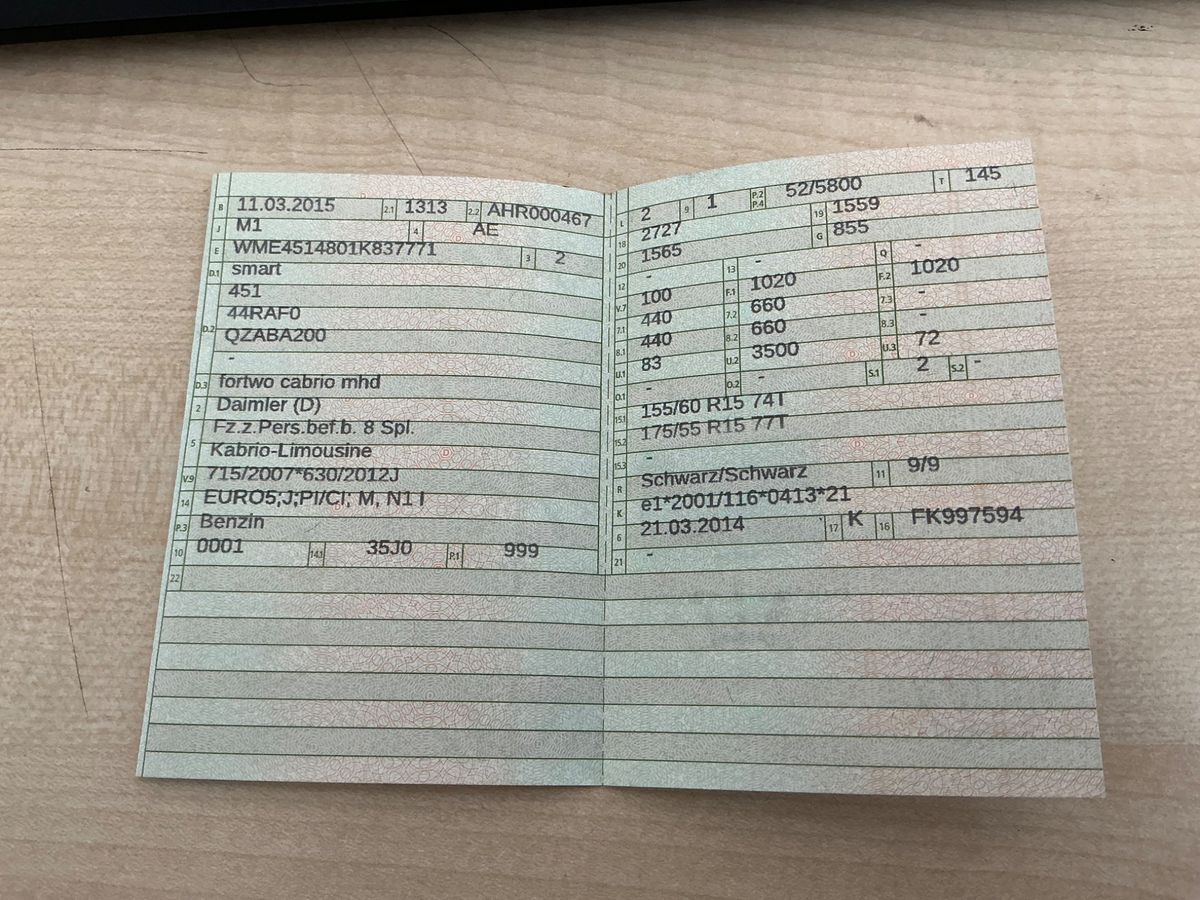 B 11.03.2015 2.1 1313 2.2 AHR000467
J M1 4 AE
E WME4514801K837771 3 2
D.1 smart
451
D.2 44RAF0
QZABA200
-
D.3 fortwo cabrio mhd
2 Daimler (D)
5 Fz.z.Pers.bef.b. 8 Spl.
Kabrio-Limousine
V.9 715/2007*630/2012J
14 EURO5;J;PI/CI; M, N1 I
P.3 Benzin
10 0001 14.1 35J0 P.1 999
22
L 2 9 1 P.2 P.4 52/5800 T 145
18 2727 19 1559
20 1565 G 855
12 - 13 - Q -
V.7 100 F.1 1020 F.2 1020
7.1 440 7.2 660 7.3 -
8.1 440 8.2 660 8.3 -
U.1 83 U.2 3500 U.3 72
O.1 - O.2 - S.1 2 S.2 -
15.1 155/60 R15 74T
15.2 175/55 R15 77T
15.3 -
R Schwarz/Schwarz 11 9/9
K e1*2001/116*0413*21
6 21.03.2014 17 K 16 FK997594
21 -